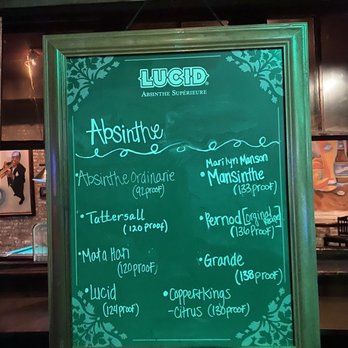 LUCID
ABSINTHE SUPÉRIEURE
Absinthe
Absinthe Ordinarie
(92 proof)
• Tattersall
(120 proof)
• Mata Hari
(120 proof)
• Lucid
(124 proof)
Marilyn Manson
• Mansinthe
(133 proof)
• Pernod [Orginal Recipe]
(136 proof)
• Grande
(138 proof)
• Copper+Kings
-Citrus (130 proof)